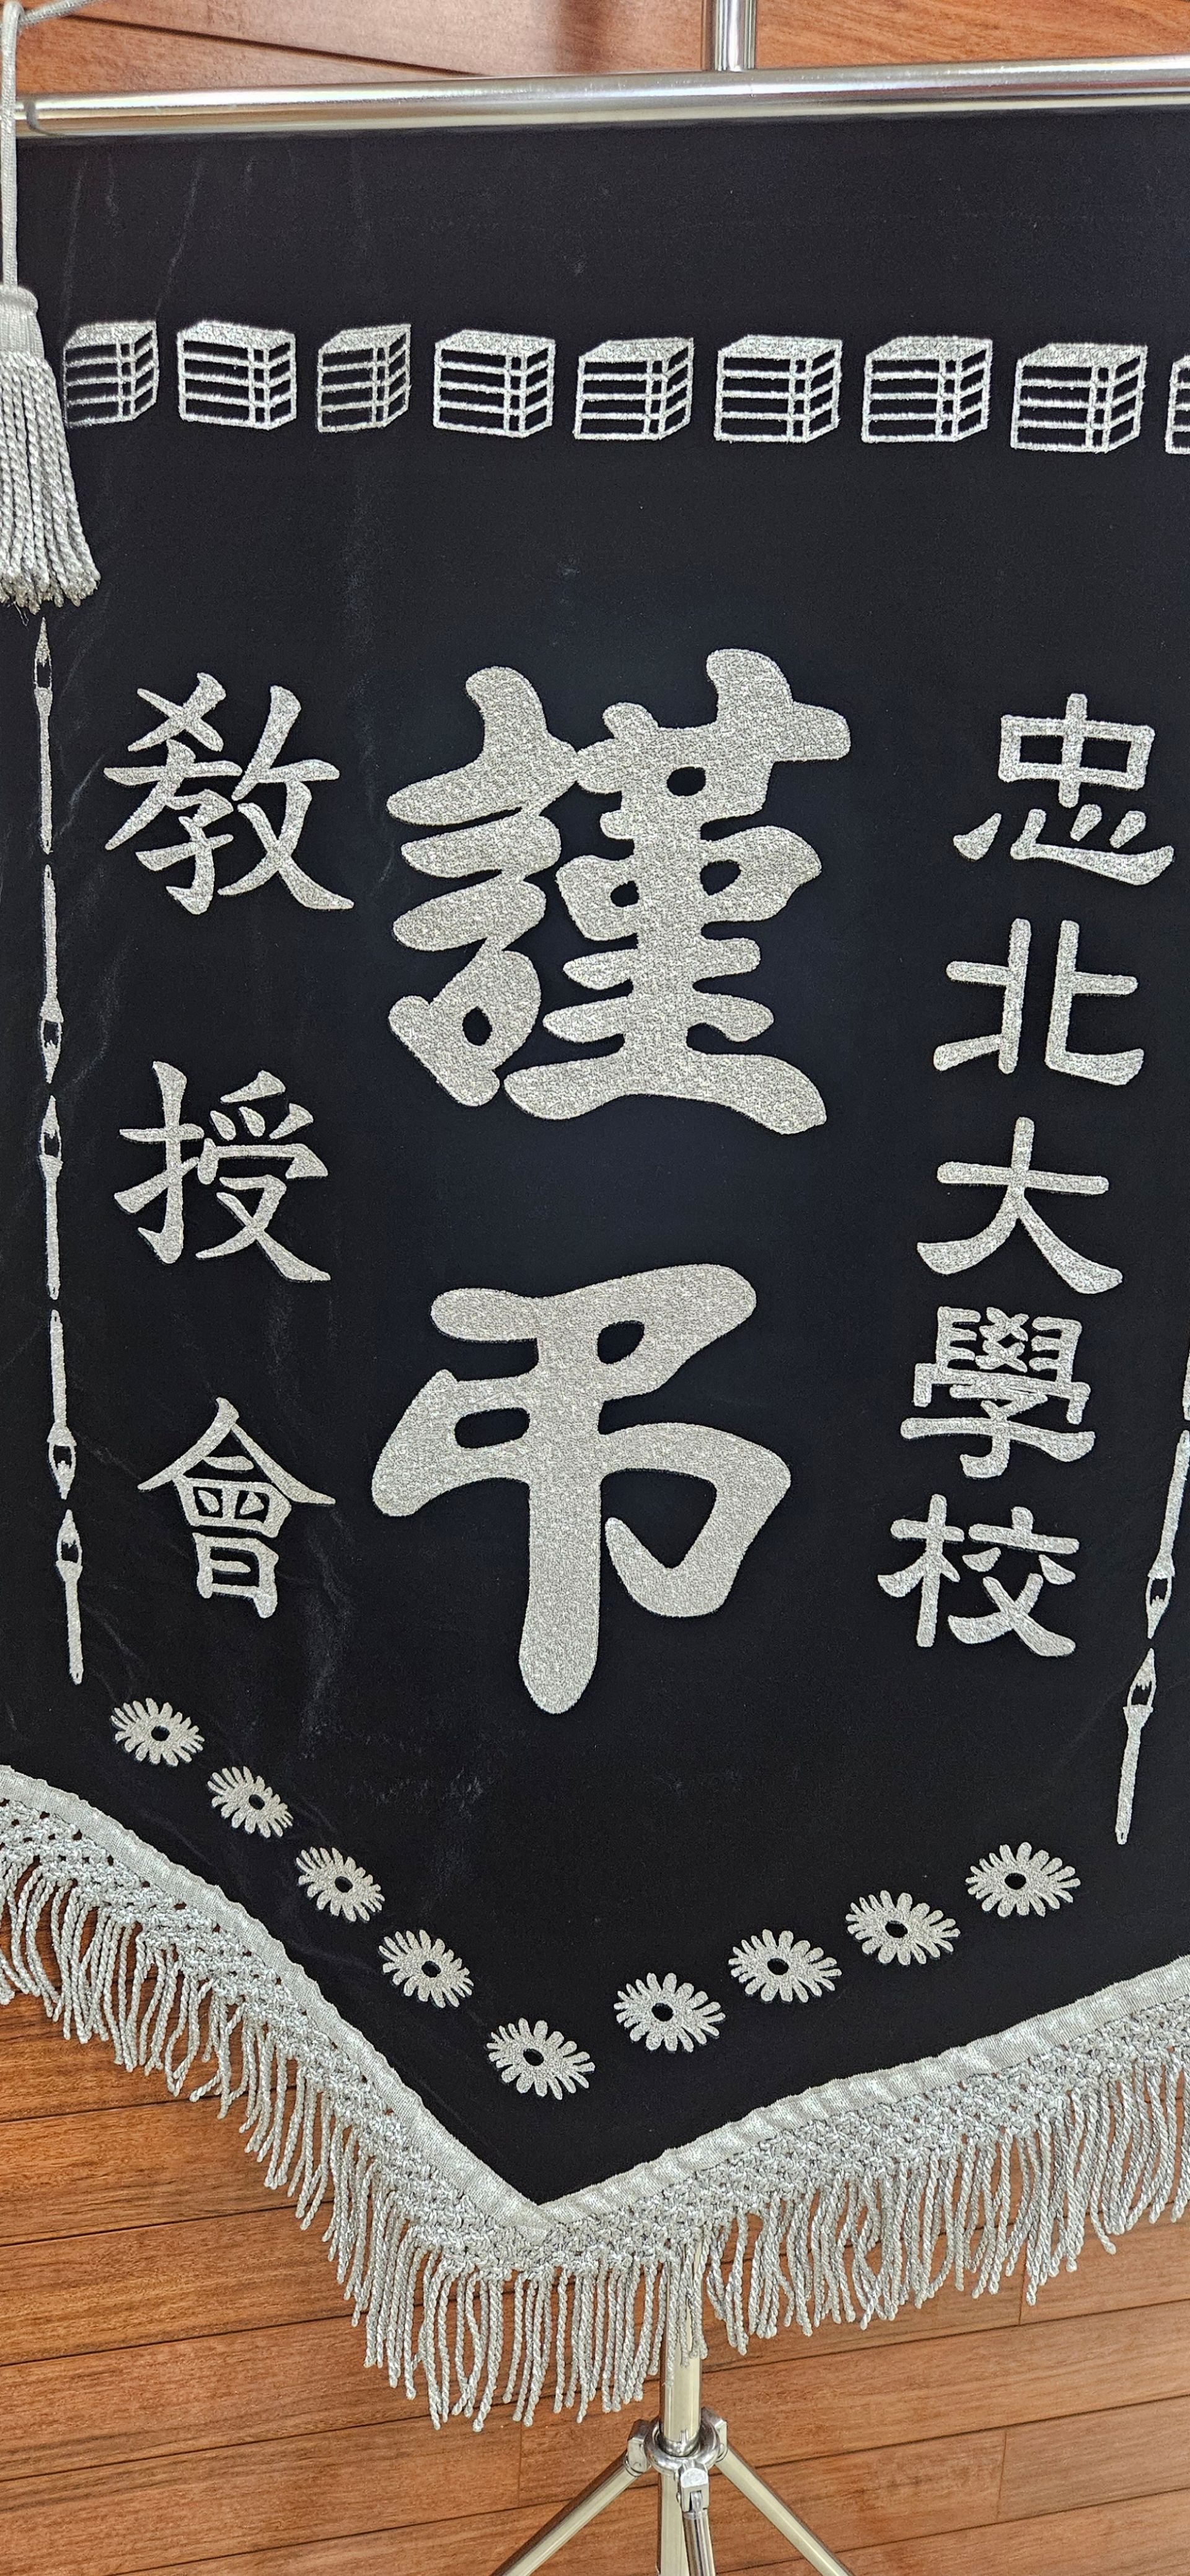 忠北大學校
謹弔
敎授會